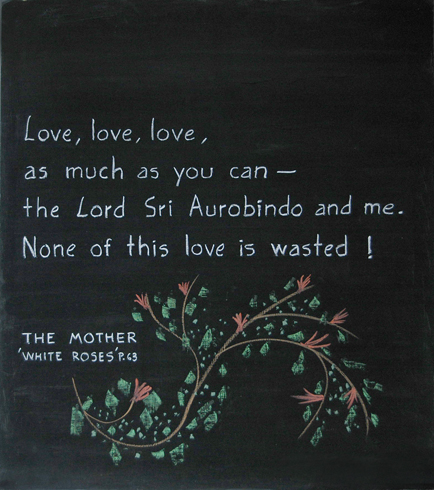 Love, love, love,
as much as you can —
the Lord Sri Aurobindo and me.
None of this love is wasted !
THE MOTHER
'WHITE ROSES' P.63